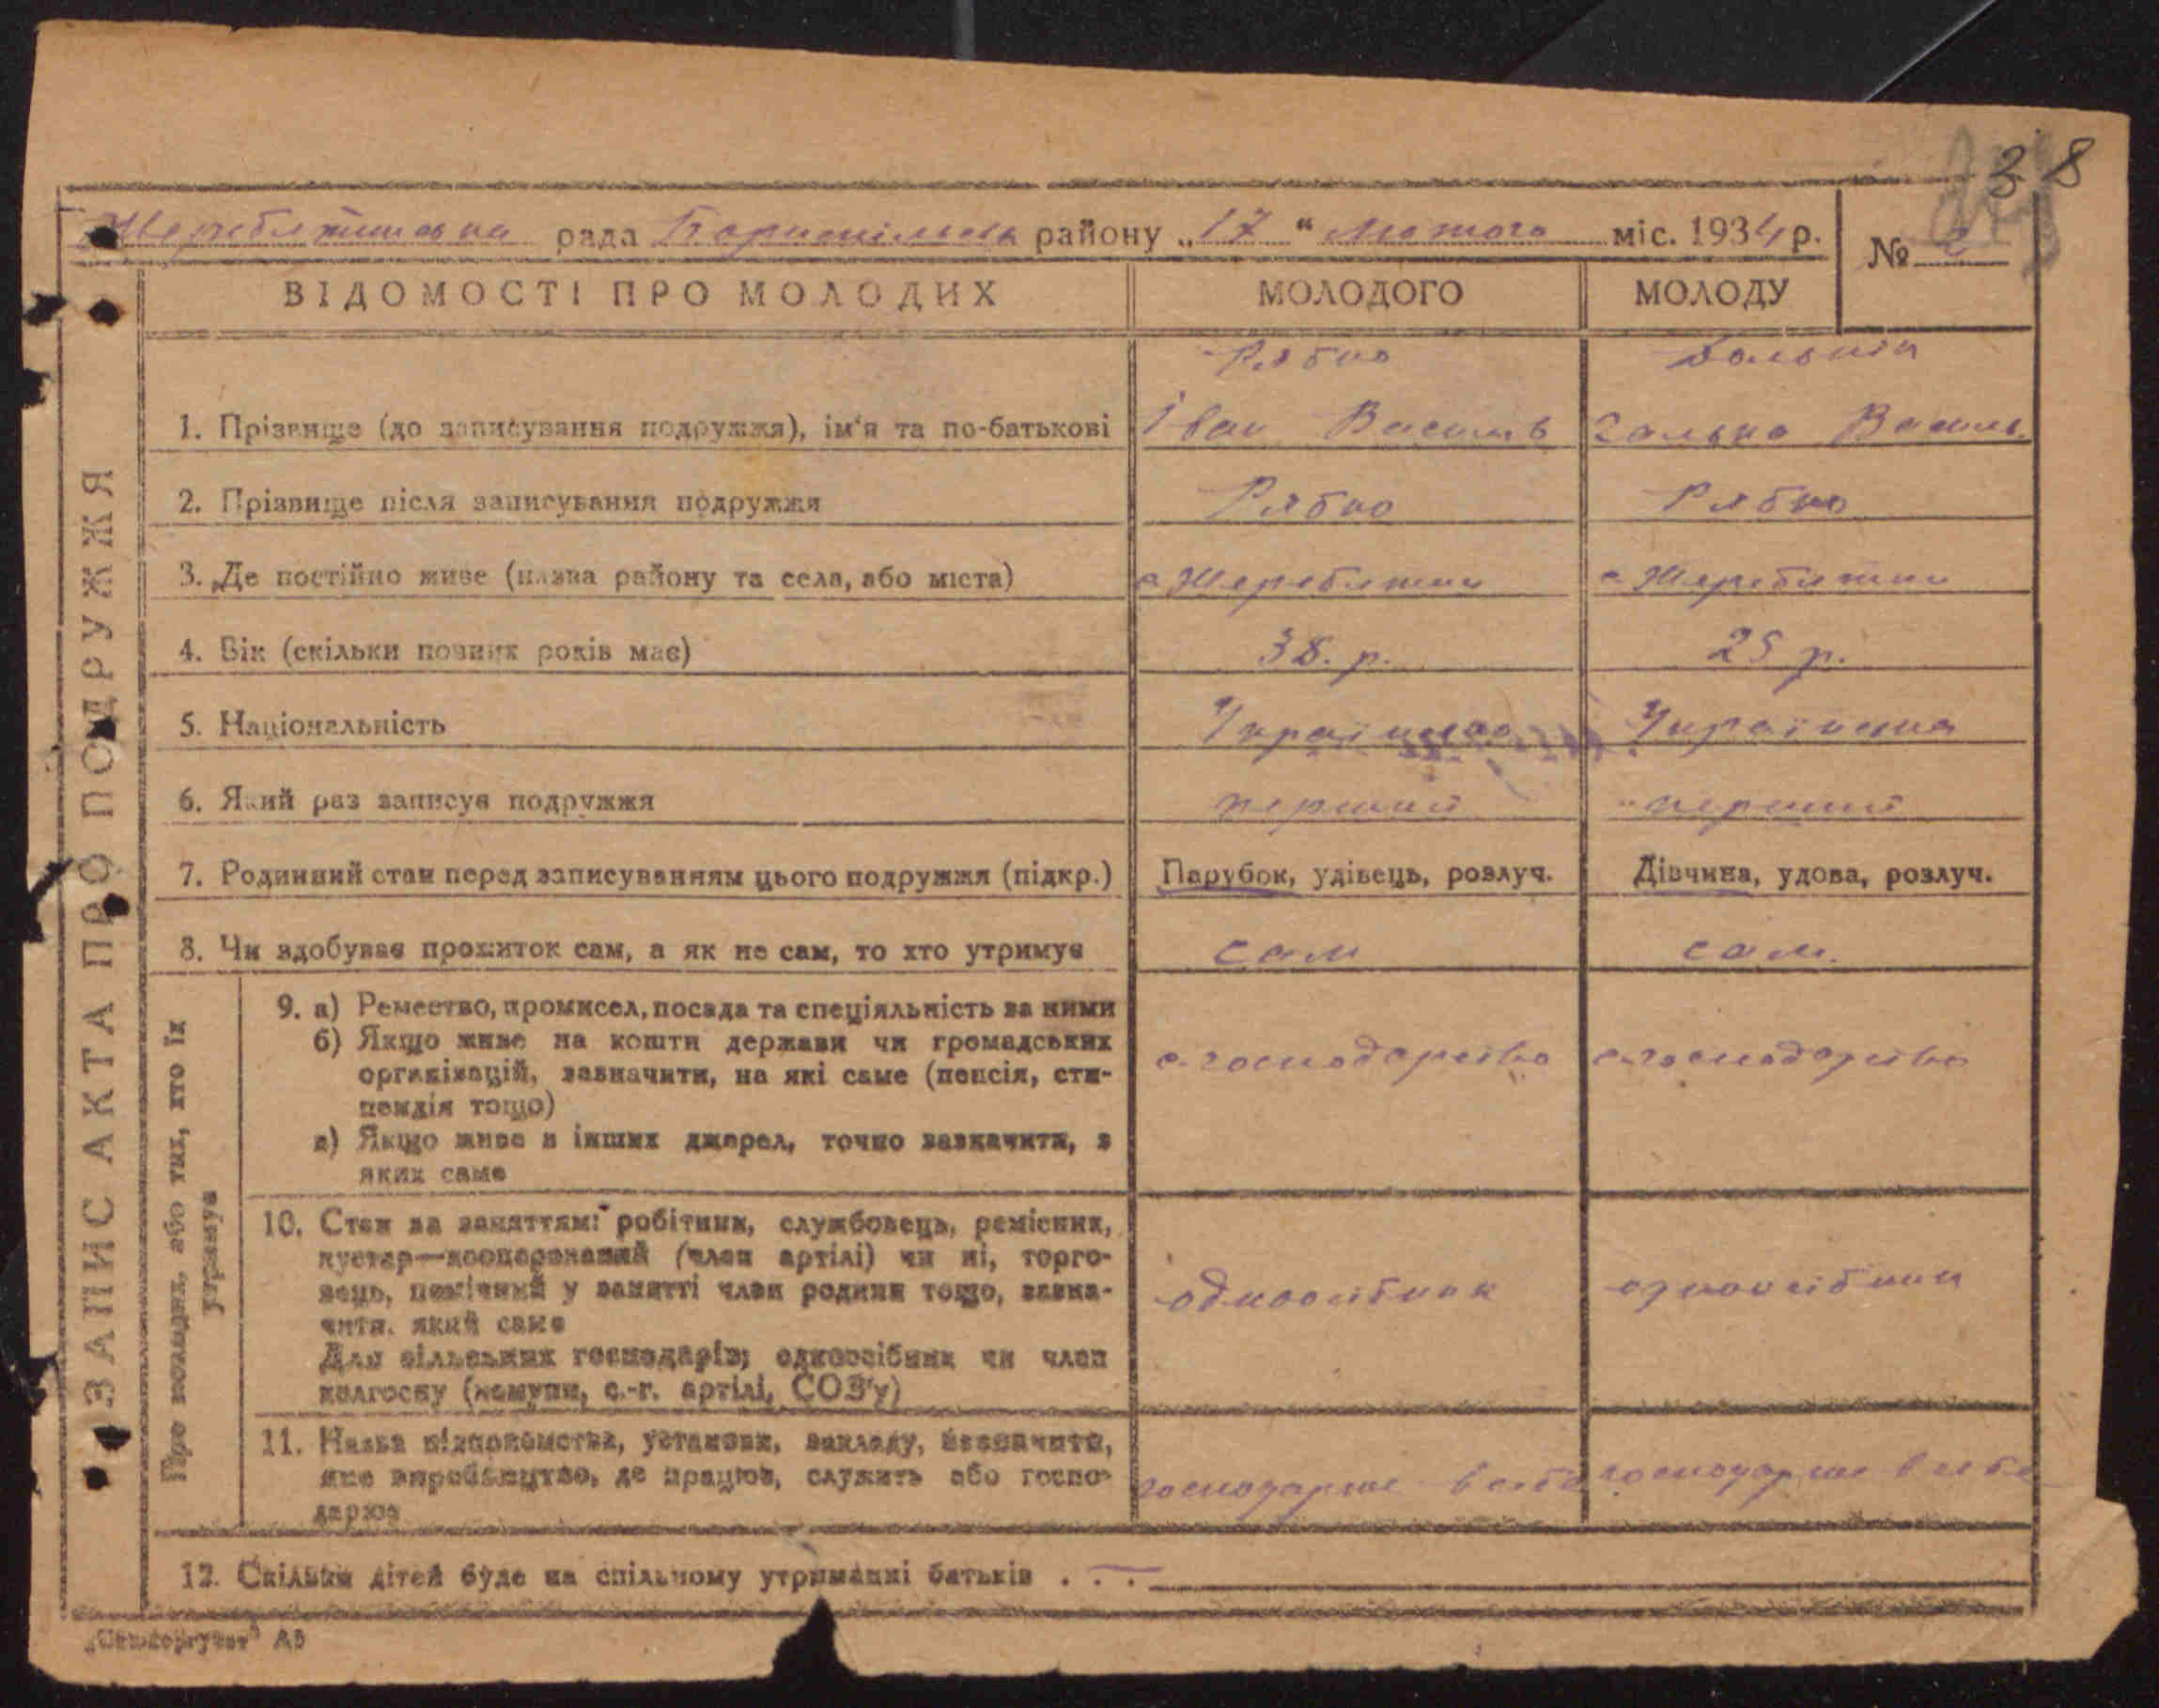 38
Жеребятинська рада Бориспільськ району „17“ Лютого міс. 1934 р.
№ 2
ВІДОМОСТІ ПРО МОЛОДИХ МОЛОДОГО МОЛОДУ
Рябко
1. Прізвище (до записування подружжя), ім'я та по-батькові Іван Василів Галька Василь.
2. Прізвище після записування подружжя Рябко Рябко
3. Де постійно живе (назва району та села, або міста) с Жеребятин с Жеребятин
4. Вік (скільки повних років має) 38. р. 25 р.
5. Національність Українець Українка
6. Який раз записує подружжя перший перший
7. Родинний стан перед записуванням цього подружжя (підкр.) Парубок, удівець, розлуч. Дівчина, удова, розлуч.
8. Чи здобуває прожиток сам, а як не сам, то хто утримує сам сам.
Про молодих, або тих, хто їх утримує
9. а) Ремество, промисел, посада та спеціяльність за ними
б) Якщо живе на кошти держави чи громадських
організацій, зазначити, на які саме (пенсія, сти-
пендія тощо)
с. господарство с. господарство
в) Якщо живе з інших джерел, точно зазначити, з
яких саме
10. Стан за заняттям: робітник, службовець, ремісник,
кустар—кооперований (член артілі) чи ні, торго-
вець, помічний у занятті член родини тощо, зазна-
чити, який саме
одноосібник одноосібник
Для сільських господарів; одноосібник чи член
колгоспу (комуни, с.-г. артілі, СОЗ'у)
11. Назва підприємства, установи, закладу, зазначити,
яке виробництво, де працює, служить або госпо-
дарює
господарює в себе господарює в себе
12. Скільки дітей буде на спільному утриманні батьків . . . —
ЗАПИС АКТА ПРО ПОДРУЖЖЯ
А5